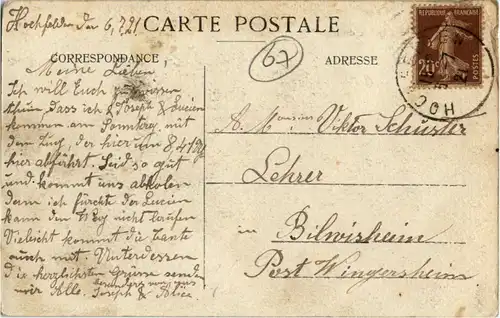 Hochfelden den 6,7,21
CARTE POSTALE
67
CORRESPONDANCE
ADRESSE
REPUBLIQUE FRANÇAISE
20c
POSTES
HOCH
Meine Lieben
Ich will Euch zu wissen
thun, dass ich & Joseph & Lucien
kommen am Samstag mit
dem Zug, der hier um 8
hier abfährt. Seid so gut
und kommt uns abholen
denn ich fürchte der Lucien
kann den Weg nicht laufen
Vieleicht kommt die Tante
auch mit. Unterdessen
die herzlichsten Grüsse sendet
wir Alle. besonders von uns
Joseph & Alice
A. Monsieur Viktor Schuster
Lehrer
in Bilwisheim
Post Wingersheim